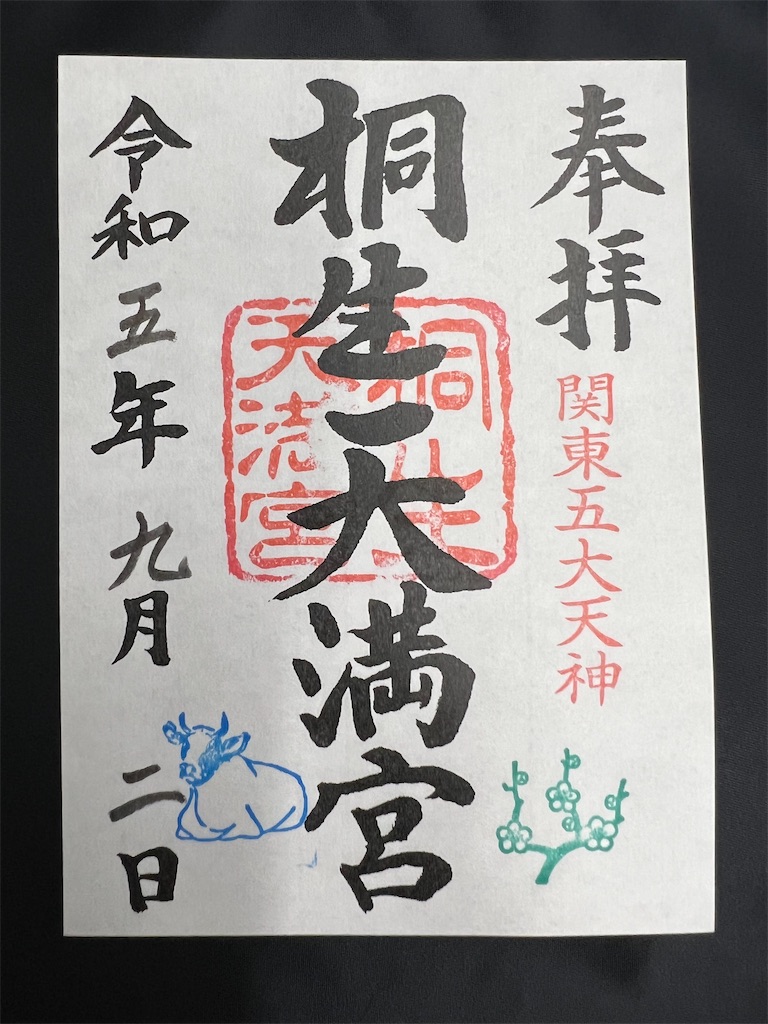 奉拝
関東五大天神
桐生天満宮
桐生
天満宮
令和五年九月二日